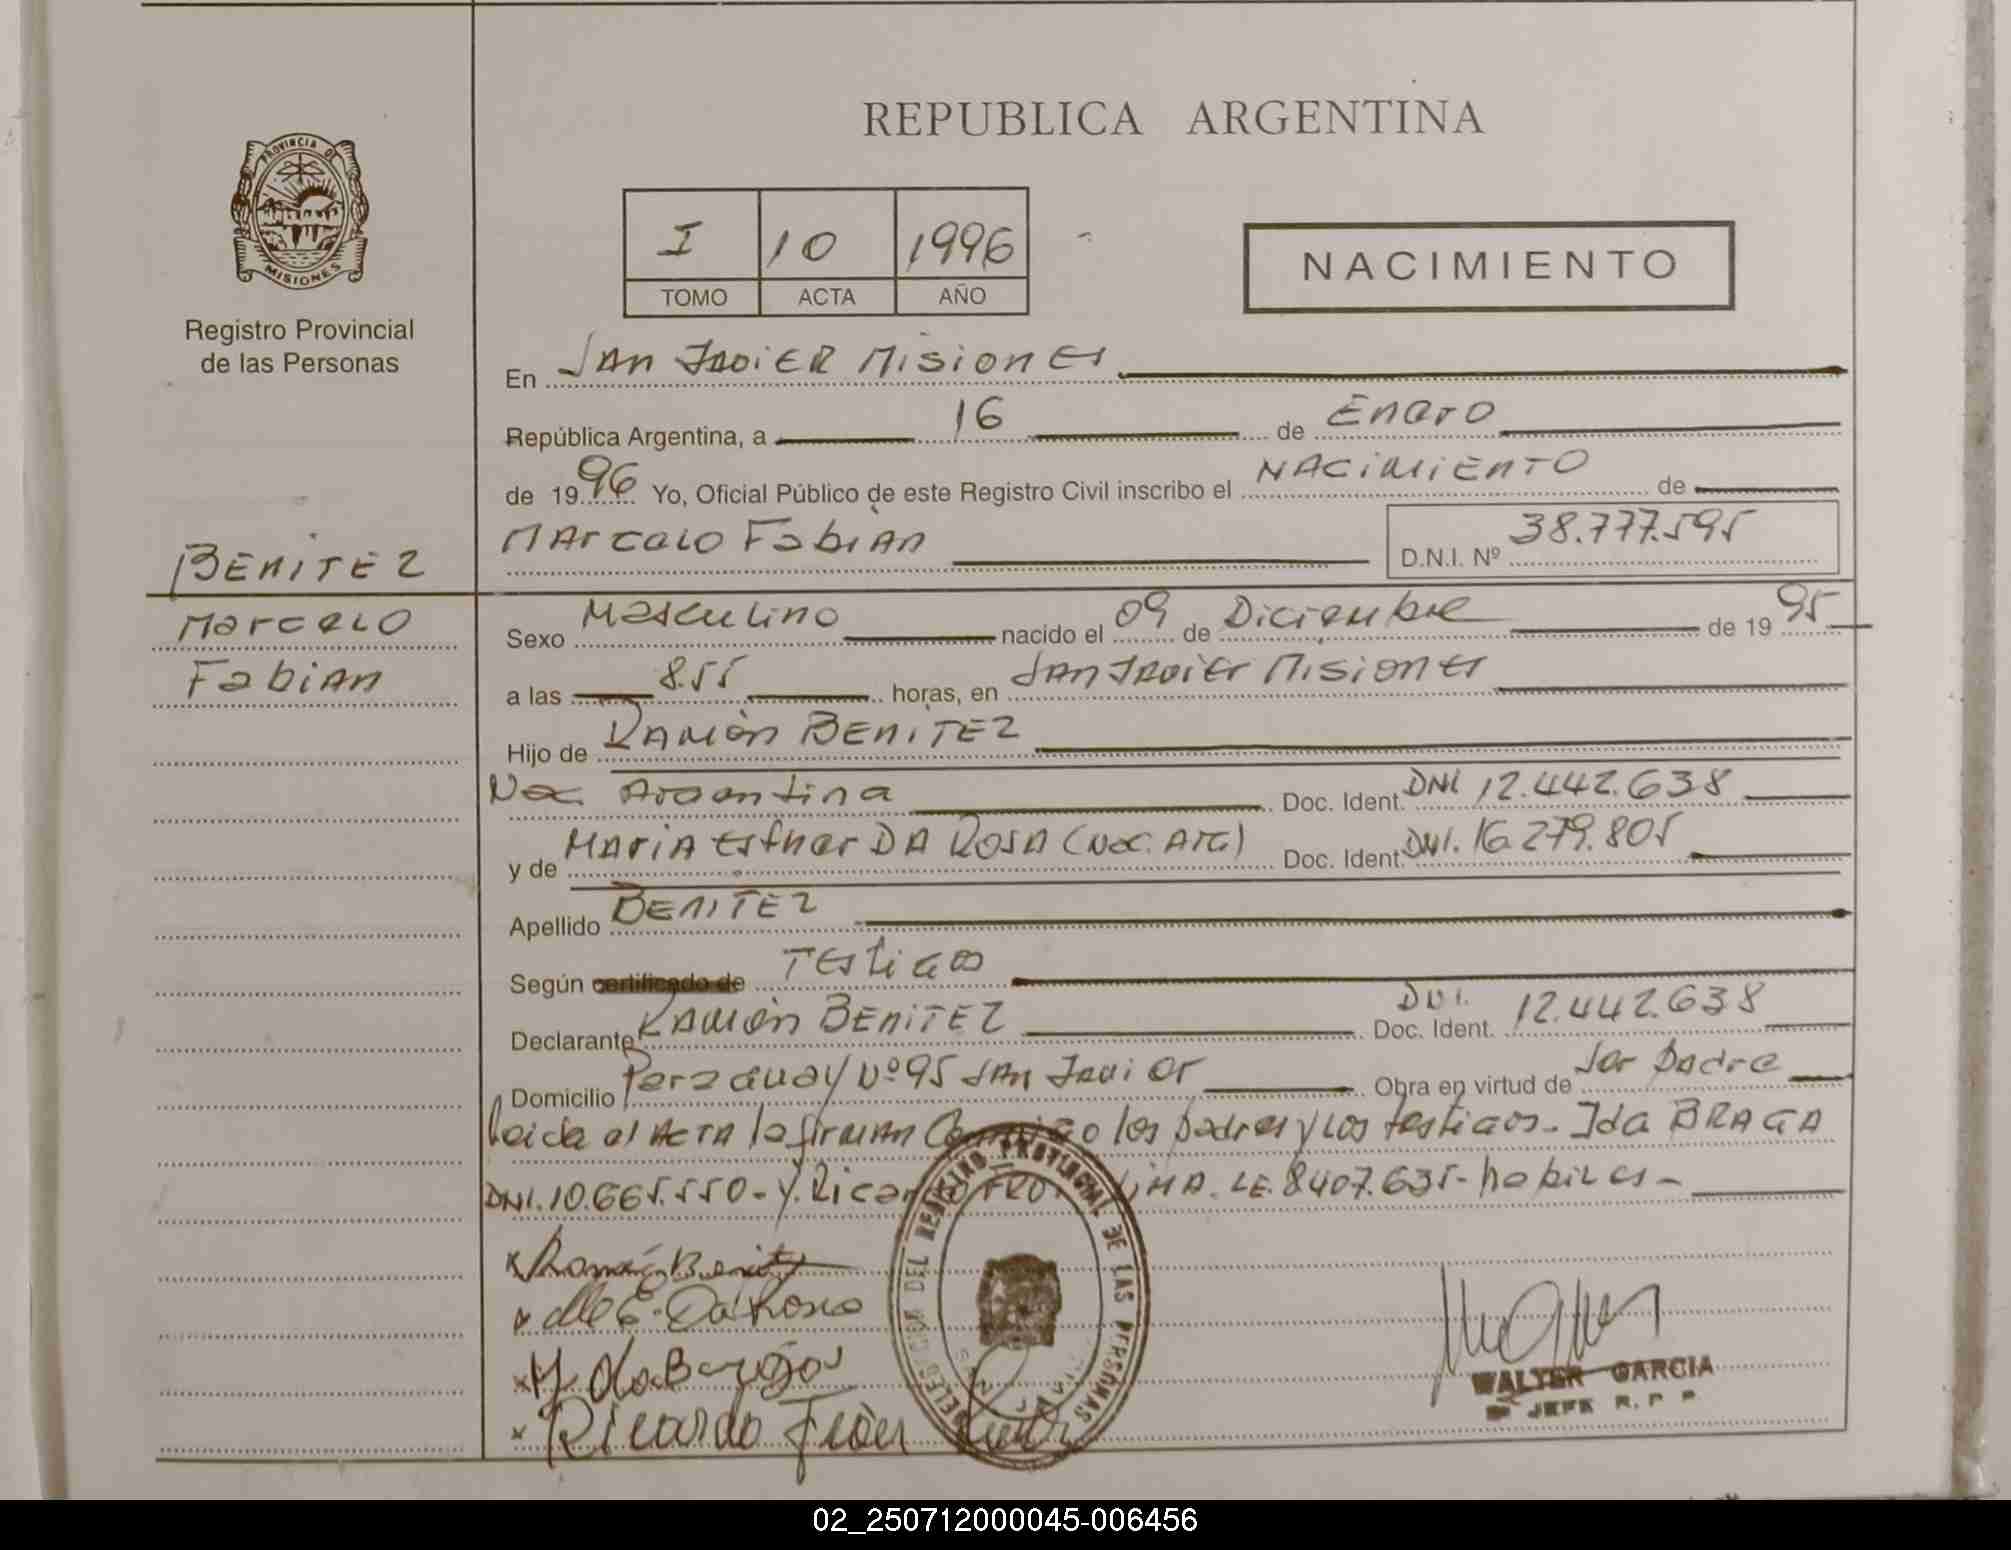 REPUBLICA ARGENTINA
PROVINCIA DE
MISIONES
Registro Provincial
de las Personas
I 10 1996
TOMO ACTA AÑO
NACIMIENTO
En SAN JAVIER MISIONES
República Argentina, a 16 de Enero
de 1996 Yo, Oficial Público de este Registro Civil inscribo el NACIMIENTO de
MArcelo FabiAn D.N.I. Nº 38.777.595
BENITEZ
Marcelo
FabiAn
Sexo Masculino nacido el 09 de Diciembre de 1995
a las 8.55 horas, en SAN JAVIEr MISIONES
Hijo de RAMÓN BENITEZ
Nac. Argentina Doc. Ident. DNI 12.442.638
y de MAriA Esther DA ROSA (Nac. Arg) Doc. Ident. DNI. 16.279.805
Apellido BENITEZ
Según certificado de Testigos
Declarante RAMÓN BENITEZ Doc. Ident. DNI. 12.442.638
Domicilio Paraguay Nº 95 SAN Javier Obra en virtud de Ser Padre
Leida el ACTA la firmAn Conmigo los padres y los testigos - Ida BRAGA
DNI. 10.665.550 - y Ricardo LIMA. LE. 8407.635 - habiles -
Ramón Benitez
M E. Da Rosa
Ricardo
DELEGACION DEL REGISTRO PROVINCIAL DE LAS PERSONAS
SAN JAVIER
WALTER GARCIA
JEFE R. P. P.
02_250712000045-006456